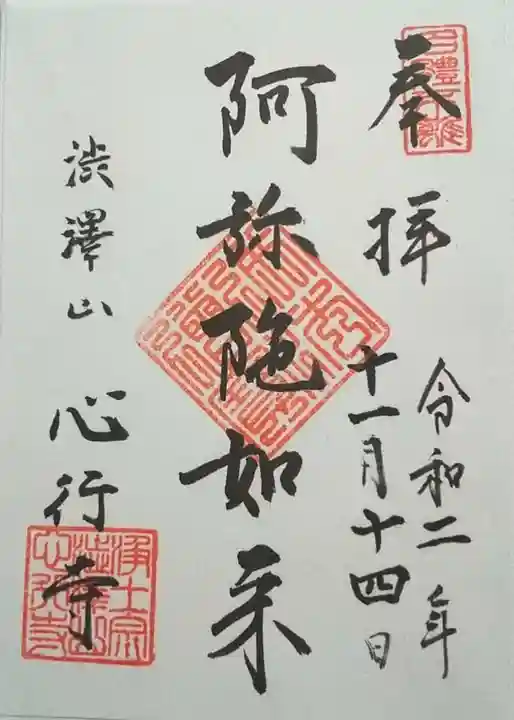 奉拝
令和二年
十一月十四日
阿弥陀如来
渋澤山 心行寺